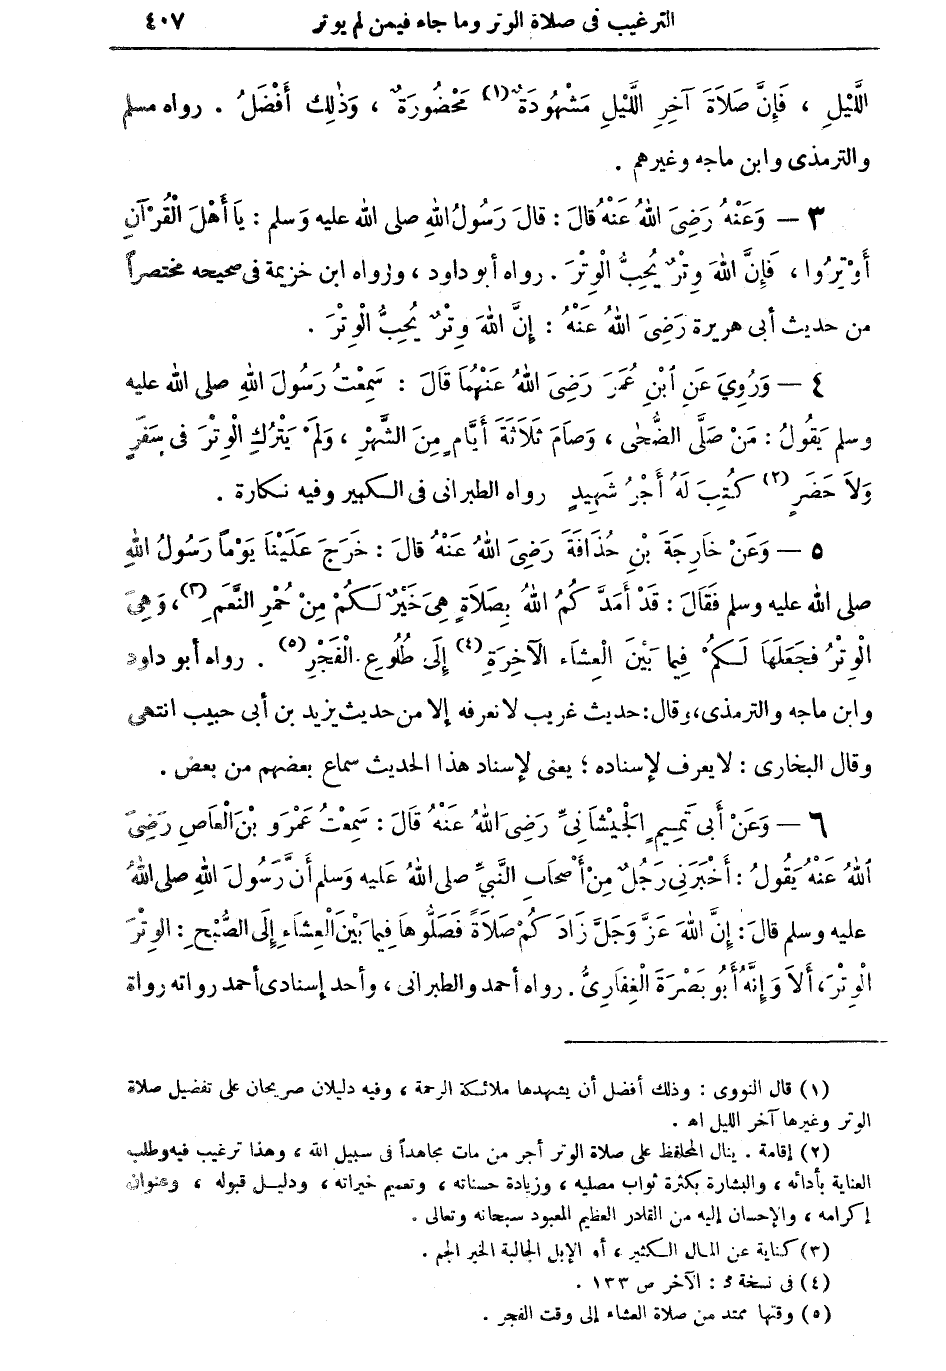 الترغيب فى صلاة الوتر وما جاء فيمن لم يوتر ٤٠٧
اللَّيْلِ ، فَإِنَّ صَلَاةَ آخِرِ اللَّيْلِ مَشْهُودَةٌ(١) مَحْضُورَةٌ ، وَذٰلِكَ أَفْضَلُ . رواه مسلم
والترمذى وابن ماجه وغيرهم .
٣ — وَعَنْهُ رَضِىَ اللهُ عَنْهُ قالَ : قالَ رَسُولُ اللهِ صلى الله عليه وَسلم : يَا أَهْلَ الْقُرْآنِ
أَوْتِرُوا ، فَإِنَّ اللهَ وِتْرٌ يُحِبُّ الْوِتْرَ . رواه أبو داود ، ورواه ابن خزيمة فى صحيحه مختصراً
من حديث أبى هريرة رَضِىَ اللهُ عَنْهُ : إِنَّ اللهَ وِتْرٌ يُحِبُّ الْوِتْرَ .
٤ — وَرُوِىَ عَنِ ابْنِ عُمَرَ رَضِىَ اللهُ عَنْهُمَا قَالَ : سَمِعْتُ رَسُولَ اللهِ صلى الله عليه
وسلم يَقُولُ : مَنْ صَلَّى الضُّحٰى ، وَصَامَ ثَلَاثَةَ أَيَّامٍ مِنَ الشَّهْرِ ، وَلَمْ يَتْرُكِ الْوِتْرَ فى سَفَرٍ
وَلَا حَضَرٍ(٢) كُتِبَ لَهُ أَجْرُ شَهِيدٍ رواه الطبرانى فى الكبير وفيه نكارة .
٥ — وَعَنْ خَارِجَةَ بْنِ حُذَافَةَ رَضِىَ اللهُ عَنْهُ قالَ : خَرَجَ عَلَيْنَا يَوْماً رَسُولُ اللهِ
صلى الله عليه وسلم فَقَالَ : قَدْ أَمَدَّ كُمُ اللهُ بِصَلَاةٍ هِىَ خَيْرٌ لَكُمْ مِنْ حُمْرِ النَّعَمِ(٣) ، وَهِىَ
الْوِتْرُ فَجَعَلَهَا لَكُمْ فِيمَا بَيْنَ الْعِشَاءِ الْآخِرَةِ(٤) إِلَى طُلُوعِ الْفَجْرِ(٥) . رواه أبو داود
وابن ماجه والترمذى، وقال : حديث غريب لا نعرفه إلا من حديث يزيد بن أبى حبيب انتهى
وقال البخارى : لا يعرف لإسناده ؛ يعنى لإسناد هذا الحديث سماع بعضهم من بعض .
٦ — وَعَنْ أَبى تَمِيمٍ الْجَيْشَانِىِّ رَضِىَ اللهُ عَنْهُ قَالَ : سَمِعْتُ عَمْرَو بْنَ الْعَاصِ رَضِىَ
اللهُ عَنْهُ يَقُولُ : أَخْبَرَنِى رَجُلٌ مِنْ أَصْحَابِ النَّبِىِّ صلى اللهُ عَليه وَسلم أَنَّ رَسُولَ اللهِ صلى اللهُ
عليه وسلم قالَ : إِنَّ اللهَ عَزَّ وَجَلَّ زَادَ كُمْ صَلَاةً فَصَلُّوهَا فِيمَا بَيْنَ الْعِشَاءِ إِلَى الصُّبْحِ : الوِتْرَ
الْوِتْرَ ، أَلَا وَإِنَّهُ أَبُو بَصْرَةَ الْغِفَارِىُّ . رواه أحمد والطبرانى ، وأحد إسنادى أحمد رواته رواة
(١) قال النووى : وذلك أفضل أن يشهدها ملائكة الرحمة ، وفيه دليلان صريحان على تفضيل صلاة
الوتر وغيرها آخر الليل اه .
(٢) إقامة . ينال المحافظ على صلاة الوتر أجر من مات مجاهداً فى سبيل الله ، وهذا ترغيب فيه وطلب
العناية بأدائه ، والبشارة بكثرة ثواب مصليه ، وزيادة حسناته ، وتعميم خيراته ، ودليل قبوله ، وعنوان
إكرامه ، والإحسان إليه من القادر العظيم المعبود سبحانه وتعالى .
(٣) كناية عن المال الكثير ، أو الإبل الجالبة الخير الجم .
(٤) فى نسخة : الآخر ص ١٣٣ .
(٥) وقتها ممتد من صلاة العشاء إلى وقت الفجر .